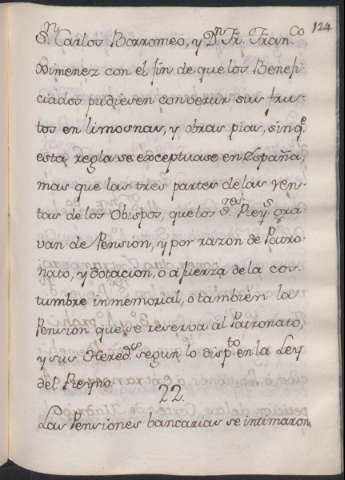 124
Sⁿ Carlos Borromeo, y Dⁿ Fr. Franᶜᵒ
Ximenez con el fin de que los Benefi-
ciados pudiesen convertir sus fru-
tos en limosnas, y obras pias, sin qᵉ
esta regla se exceptuase en España,
mas que las tres partes de las ren-
tas de los Obispos, que los Sʳᵉˢ Reyˢ gra-
van de Pension, y por razon de Patro-
nato, y dotacion, ò a fuerza de la cos-
tumbre inmemorial, ò tambien la
Pension que se reserva al Patronato,
y sus Heredˢ segun lo dispᵗᵒ en la Ley
del Reyno.
22.
Las Pensiones bancarias se intimaron